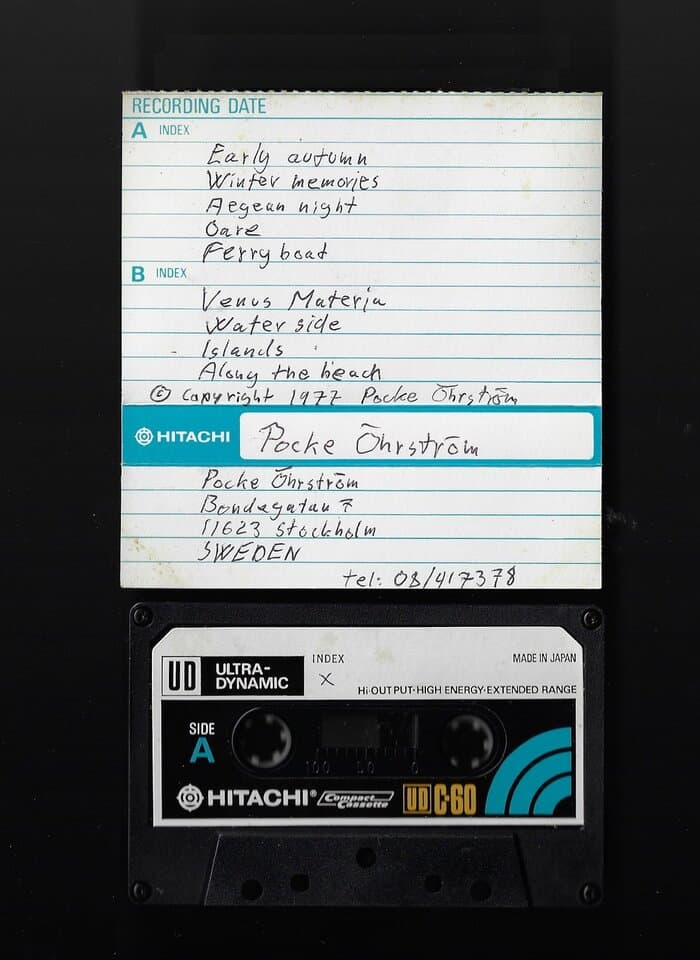 RECORDING DATE
A INDEX
Early autumn
Winter memories
Aegean night
Oare
Ferry boat
B INDEX
Venus Materia
Water side
Islands
Along the beach
© Copyright 1977 Pocke Öhrström
HITACHI Pocke Öhrström
Pocke Öhrström
Bondegatan 7
11623 Stockholm
SWEDEN
tel: 08/417378
UD ULTRA-DYNAMIC INDEX X MADE IN JAPAN
Hi-OUTPUT·HIGH ENERGY·EXTENDED RANGE
SIDE A
100 50 0
HITACHI® Compact Cassette UD C-60